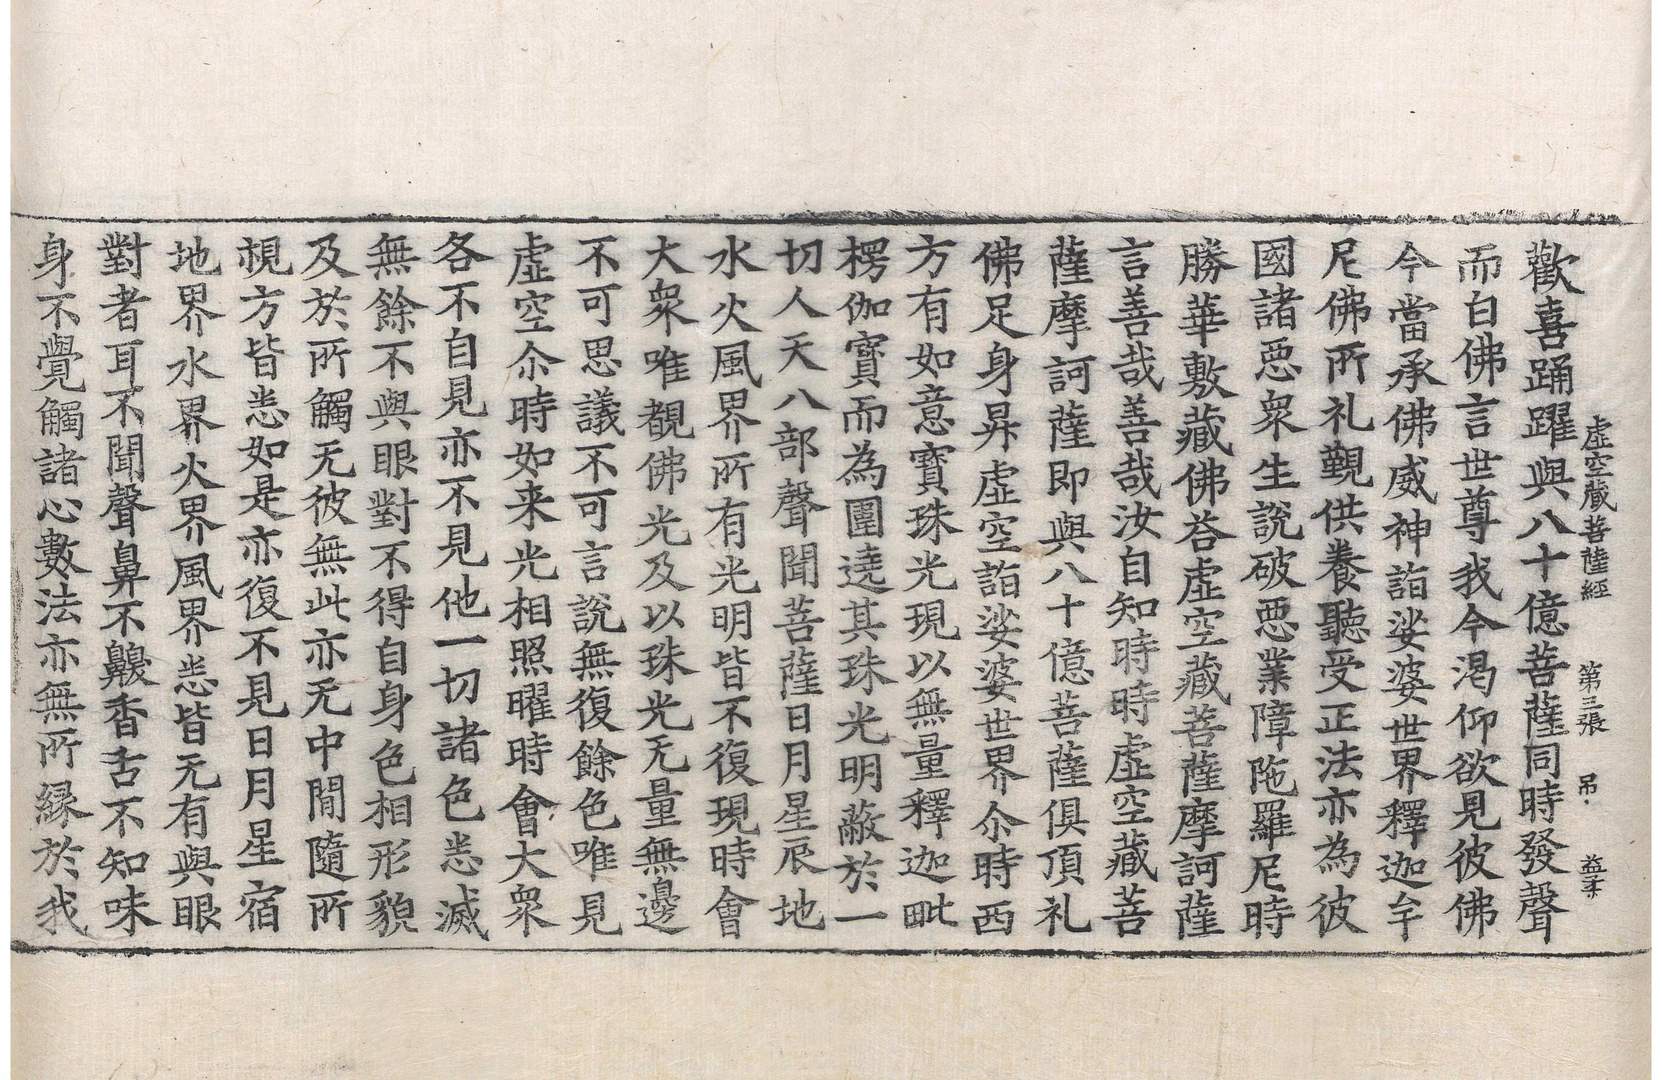 虛空藏菩薩經 第三張 吊 益柔
歡喜踊躍與八十億菩薩同時發聲
而白佛言世尊我今渴仰欲見彼佛
今當承佛威神詣娑婆世界釋迦牟
尼佛所礼覲供養聽受正法亦為彼
國諸惡衆生說破惡業障陁羅尼時
勝華敷藏佛荅虛空藏菩薩摩訶薩
言善哉善哉汝自知時時虛空藏菩
薩摩訶薩即與八十億菩薩俱頂礼
佛足身昇虛空詣娑婆世界尒時西
方有如意寶珠光現以無量釋迦毗
楞伽寶而為圍遶其珠光明蔽於一
切人天八部聲聞菩薩日月星辰地
水火風界所有光明皆不復現時會
大衆唯覩佛光及以珠光无量無邊
不可思議不可言說無復餘色唯見
虛空尒時如来光相照曜時會大衆
各不自見亦不見他一切諸色悉滅
無餘不與眼對不得自身色相形貌
及於所觸无彼無此亦无中閒隨所
視方皆悉如是亦復不見日月星宿
地界水界火界風界悉皆无有與眼
對者耳不聞聲鼻不齅香舌不知味
身不覺觸諸心數法亦無所緣於我